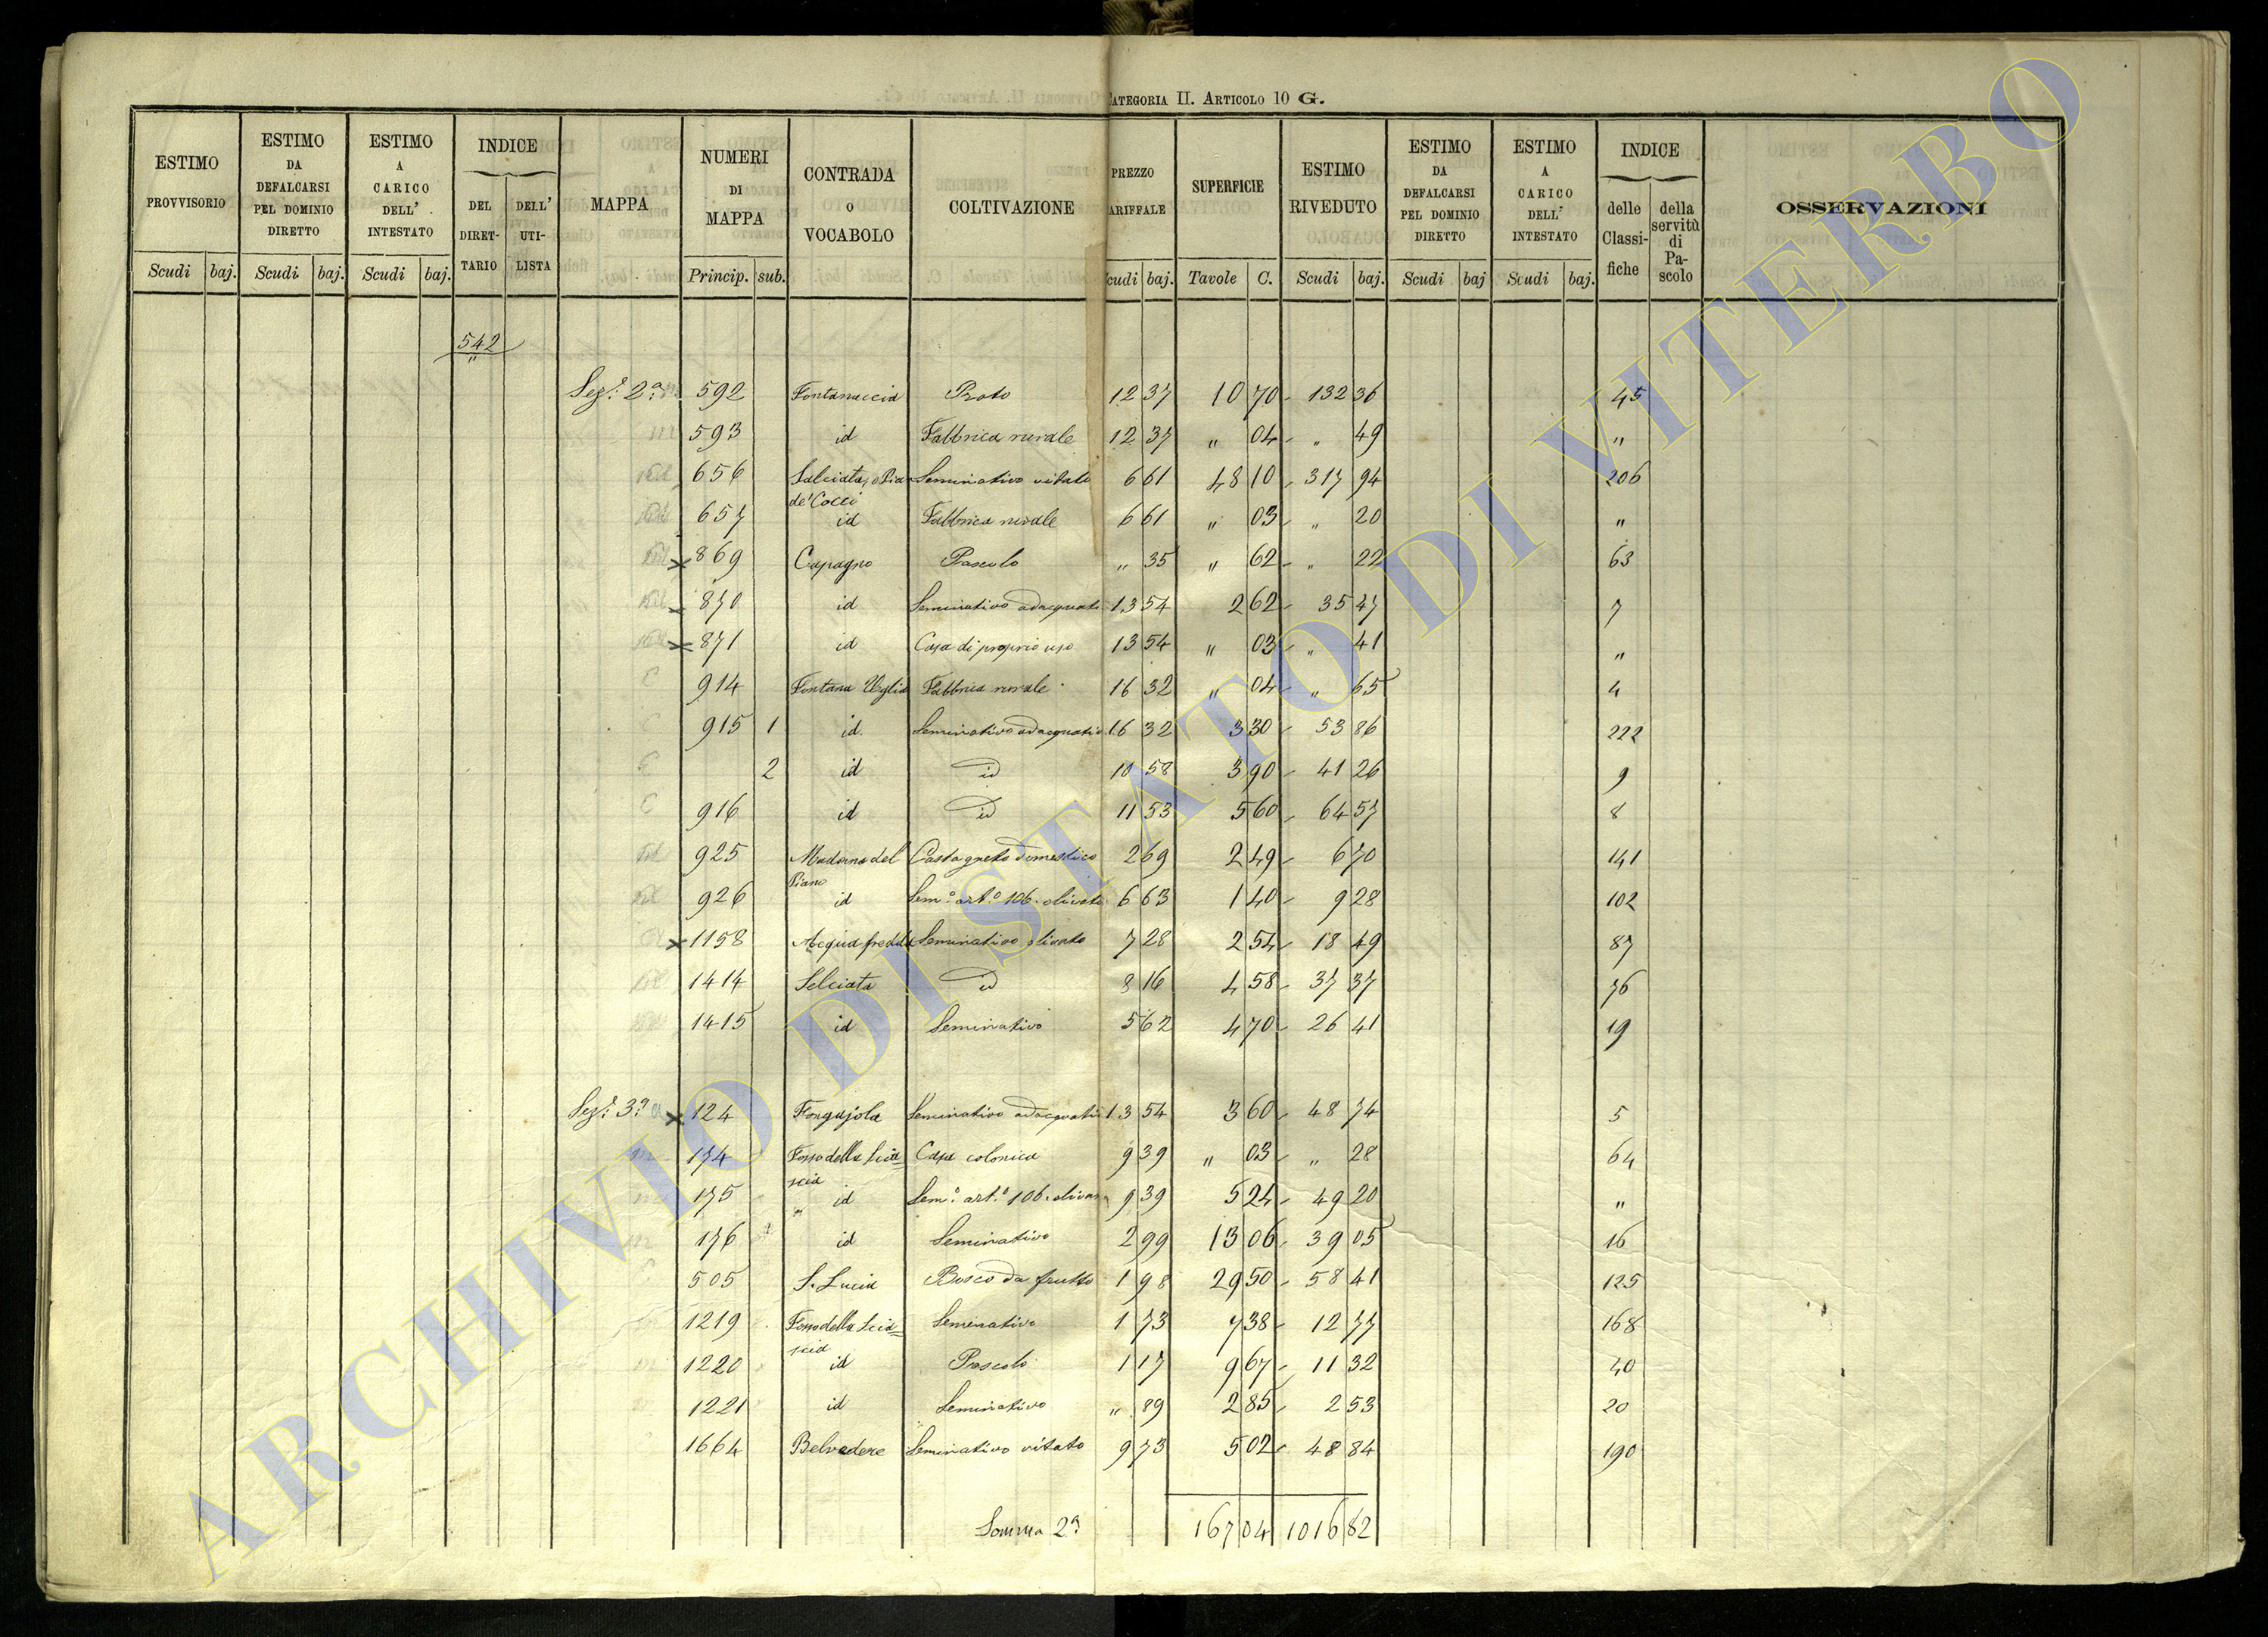 CATEGORIA II. ARTICOLO 10 G.
ESTIMO PROVVISORIO Scudi baj.
ESTIMO DA DEFALCARSI PEL DOMINIO DIRETTO Scudi baj.
ESTIMO A CARICO DELL' INTESTATO Scudi baj.
INDICE DEL DIRETTARIO DELL' UTILISTA
MAPPA
NUMERI DI MAPPA Princip. sub.
CONTRADA O VOCABOLO
COLTIVAZIONE
PREZZO ARIFFALE cudi baj.
SUPERFICIE Tavole C.
ESTIMO RIVEDUTO Scudi baj.
ESTIMO DA DEFALCARSI PEL DOMINIO DIRETTO Scudi baj
ESTIMO A CARICO DELL' INTESTATO Scudi baj.
INDICE delle Classifiche della servitù di Pascolo
OSSERVAZIONI
542
"
Sez.e 2a 592 Fontanaccia Prato 12 37 10 70 132 36 45
593 id Fabbrica rurale 12 37 " 04 " 49 "
656 Salciata, o Pian Seminativo vitato 6 61 48 10 317 94 206
de' Cocci
657 id Fabbrica rurale 6 61 " 03 " 20 "
x 869 Capagno Pascolo " 35 " 62 " 22 63
x 870 id Seminativo adacquato 13 54 2 62 35 47 7
x 871 id Casa di proprio uso 13 54 " 03 " 41 "
914 Fontana Uglia Fabbrica rurale 16 32 " 04 " 65 4
915 1 id Seminativo adacquativo 16 32 3 30 53 86 222
2 id id 10 58 3 90 41 26 9
916 id id 11 53 5 60 64 57 8
925 Madonna del Castagneto domestico 2 69 2 49 6 70 141
Piano
926 id Sem.o art.o 106. olivato 6 63 1 40 9 28 102
x 1158 Acqua fredda Seminativo olivato 7 28 2 54 18 49 87
1414 Selciata id 8 16 4 58 37 37 76
1415 id Seminativo 5 62 4 70 26 41 19
Sez.e 3a x 124 Fongajola Seminativo adacquativo 13 54 3 60 48 74 5
174 Fosso della Scia= Casa colonica 9 39 " 03 " 28 64
scia
175 " id Sem.o art.o 106. olivato 9 39 5 24 49 20 "
176 id Seminativo 2 99 13 06 39 05 16
505 S. Lucia Bosco da frutto 1 98 29 50 58 41 125
1219 Fosso della Scia= Seminativo 1 73 7 38 12 77 168
scia
1220 id Pascolo 1 17 9 67 11 32 40
1221 id Seminativo " 89 2 85 2 53 20
1664 Belvedere Seminativo vitato 9 73 5 02 48 84 190
Somma 2a 167 04 1016 82
ARCHIVIO DI STATO DI VITERBO